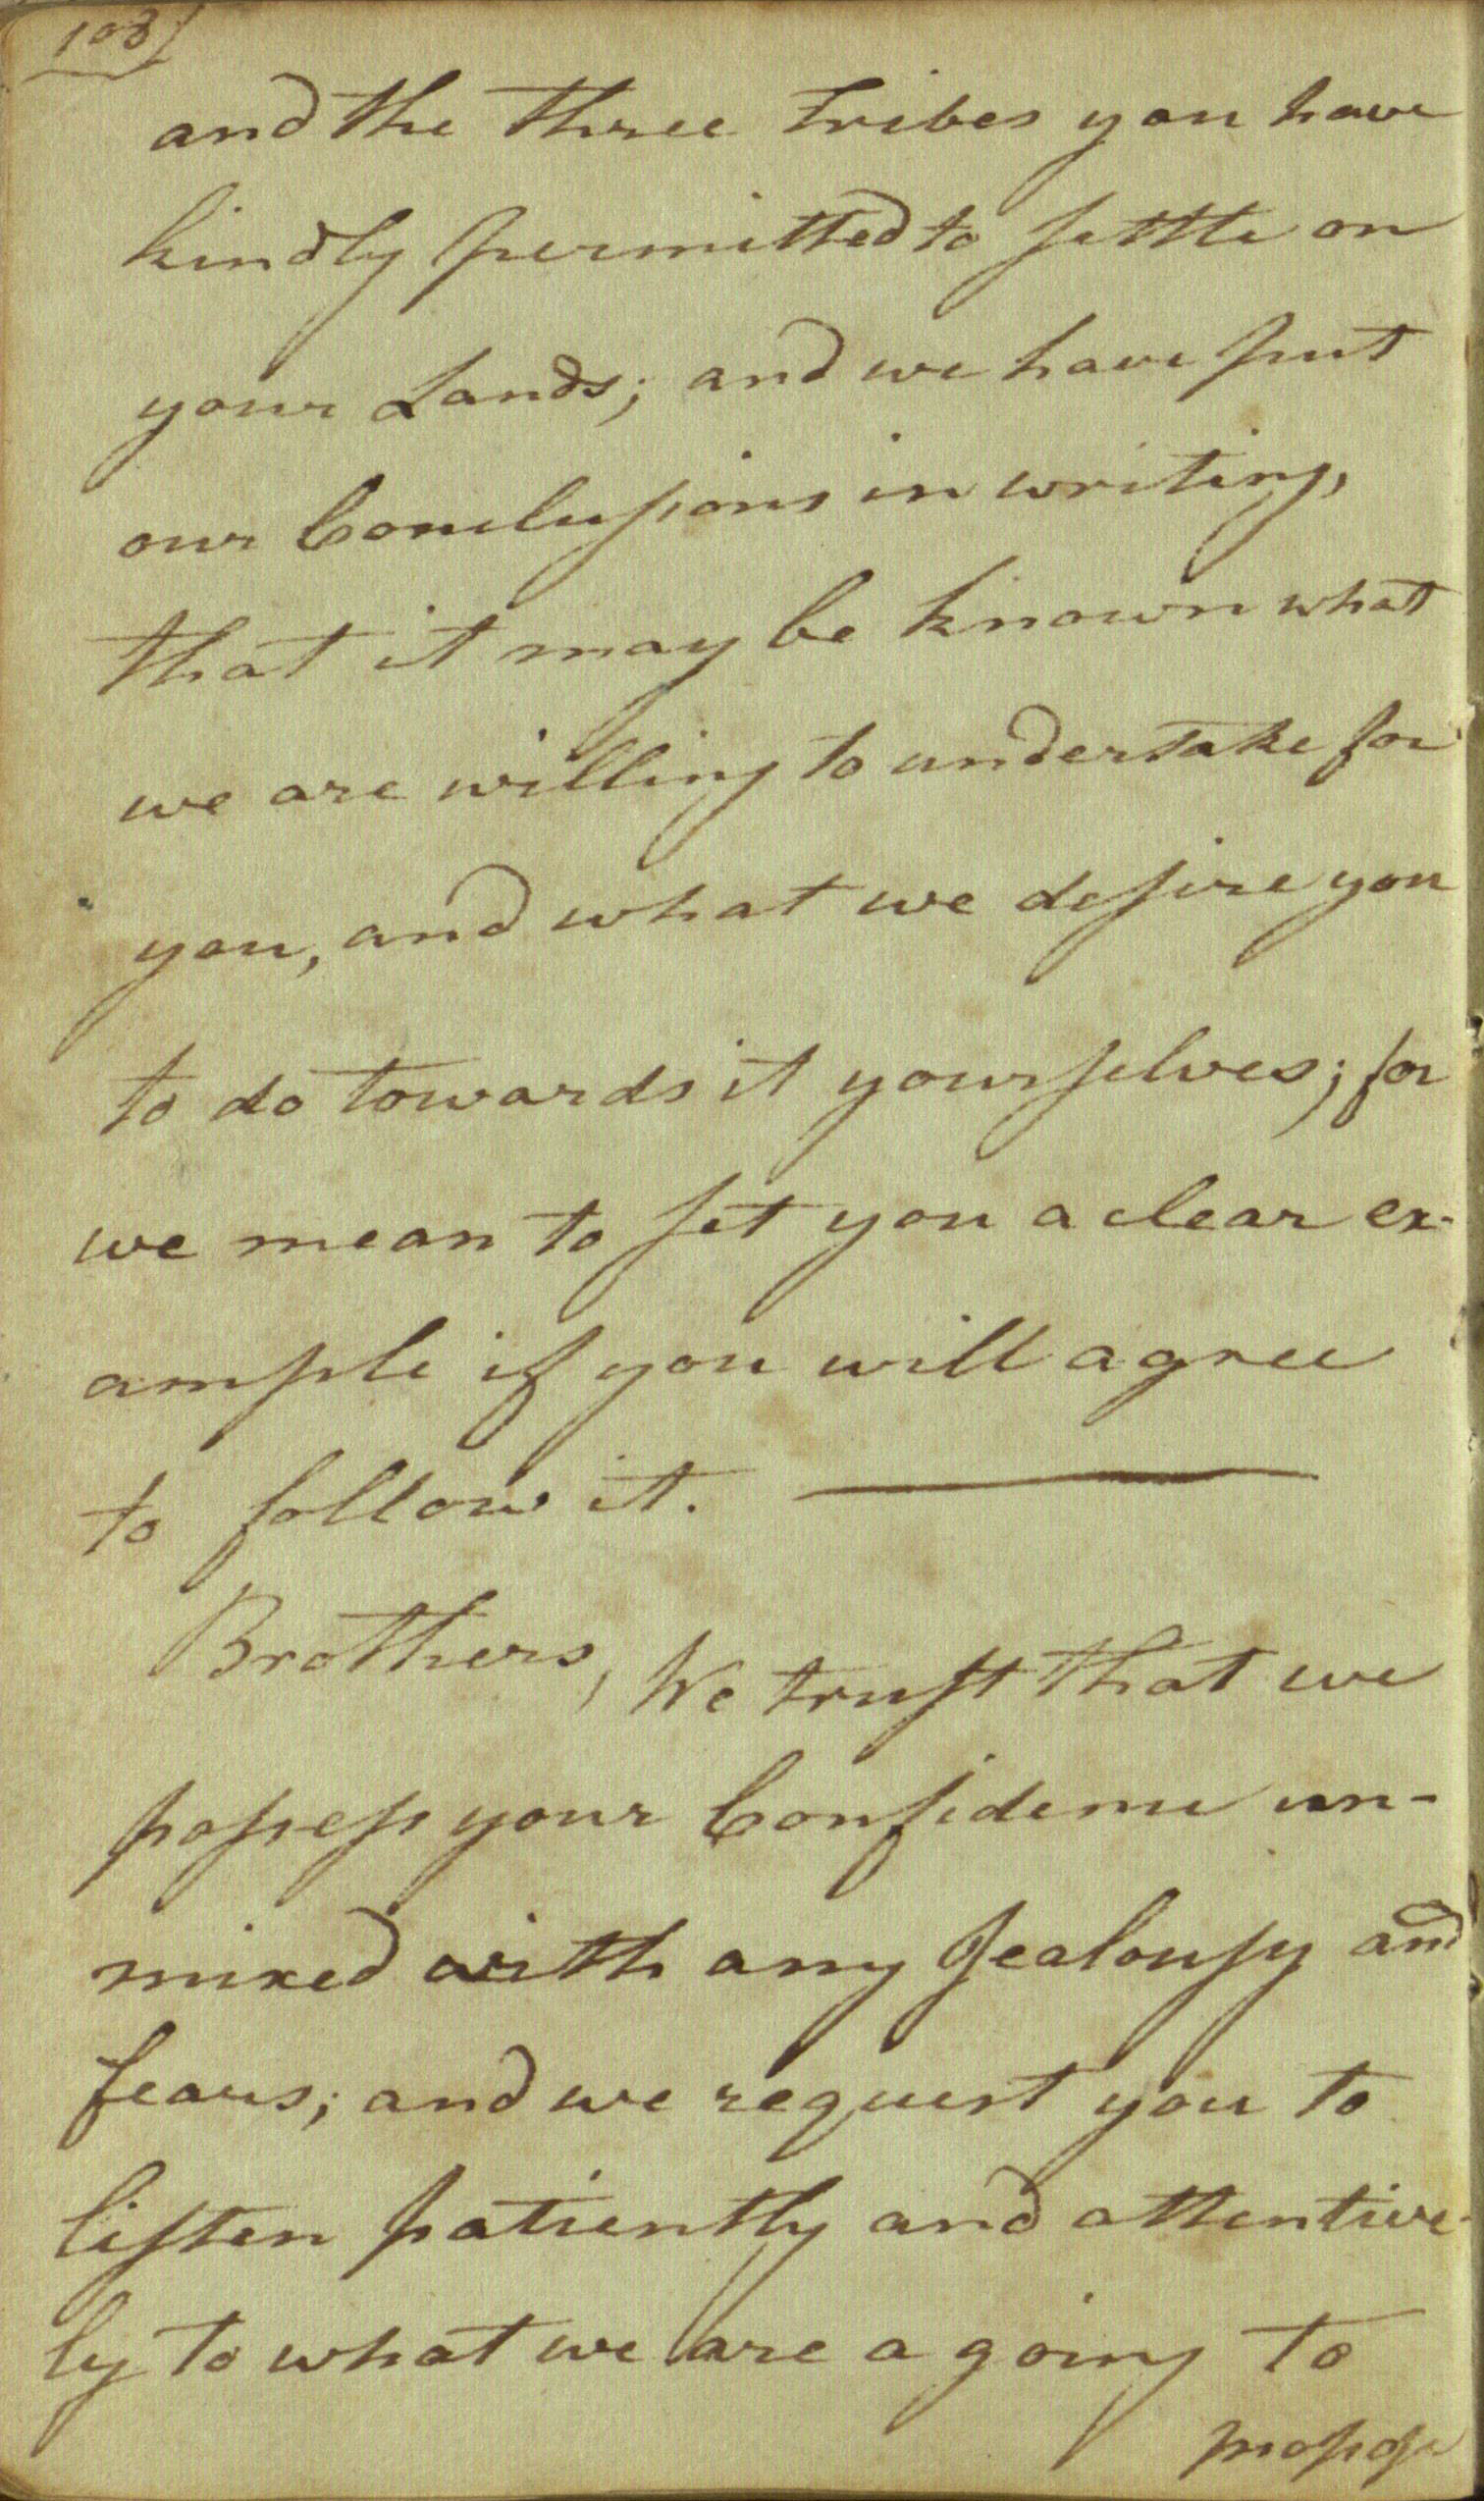 108/
and the three Tribes you have
kindly permitted to settle on
your Lands; and we have put
our Conclusions in writing,
that it may be known what
we are willing to undertake for
you, and what we desire you
to do towards it yourselves; for
we mean to set you a clear ex-
ample if you will agree
to follow it.
Brothers, We trust that we
possess your Confidence un-
mixed with any Jealousy and
fears; and we request you to
listen patiently and attentive-
ly to what we are a going to
propose